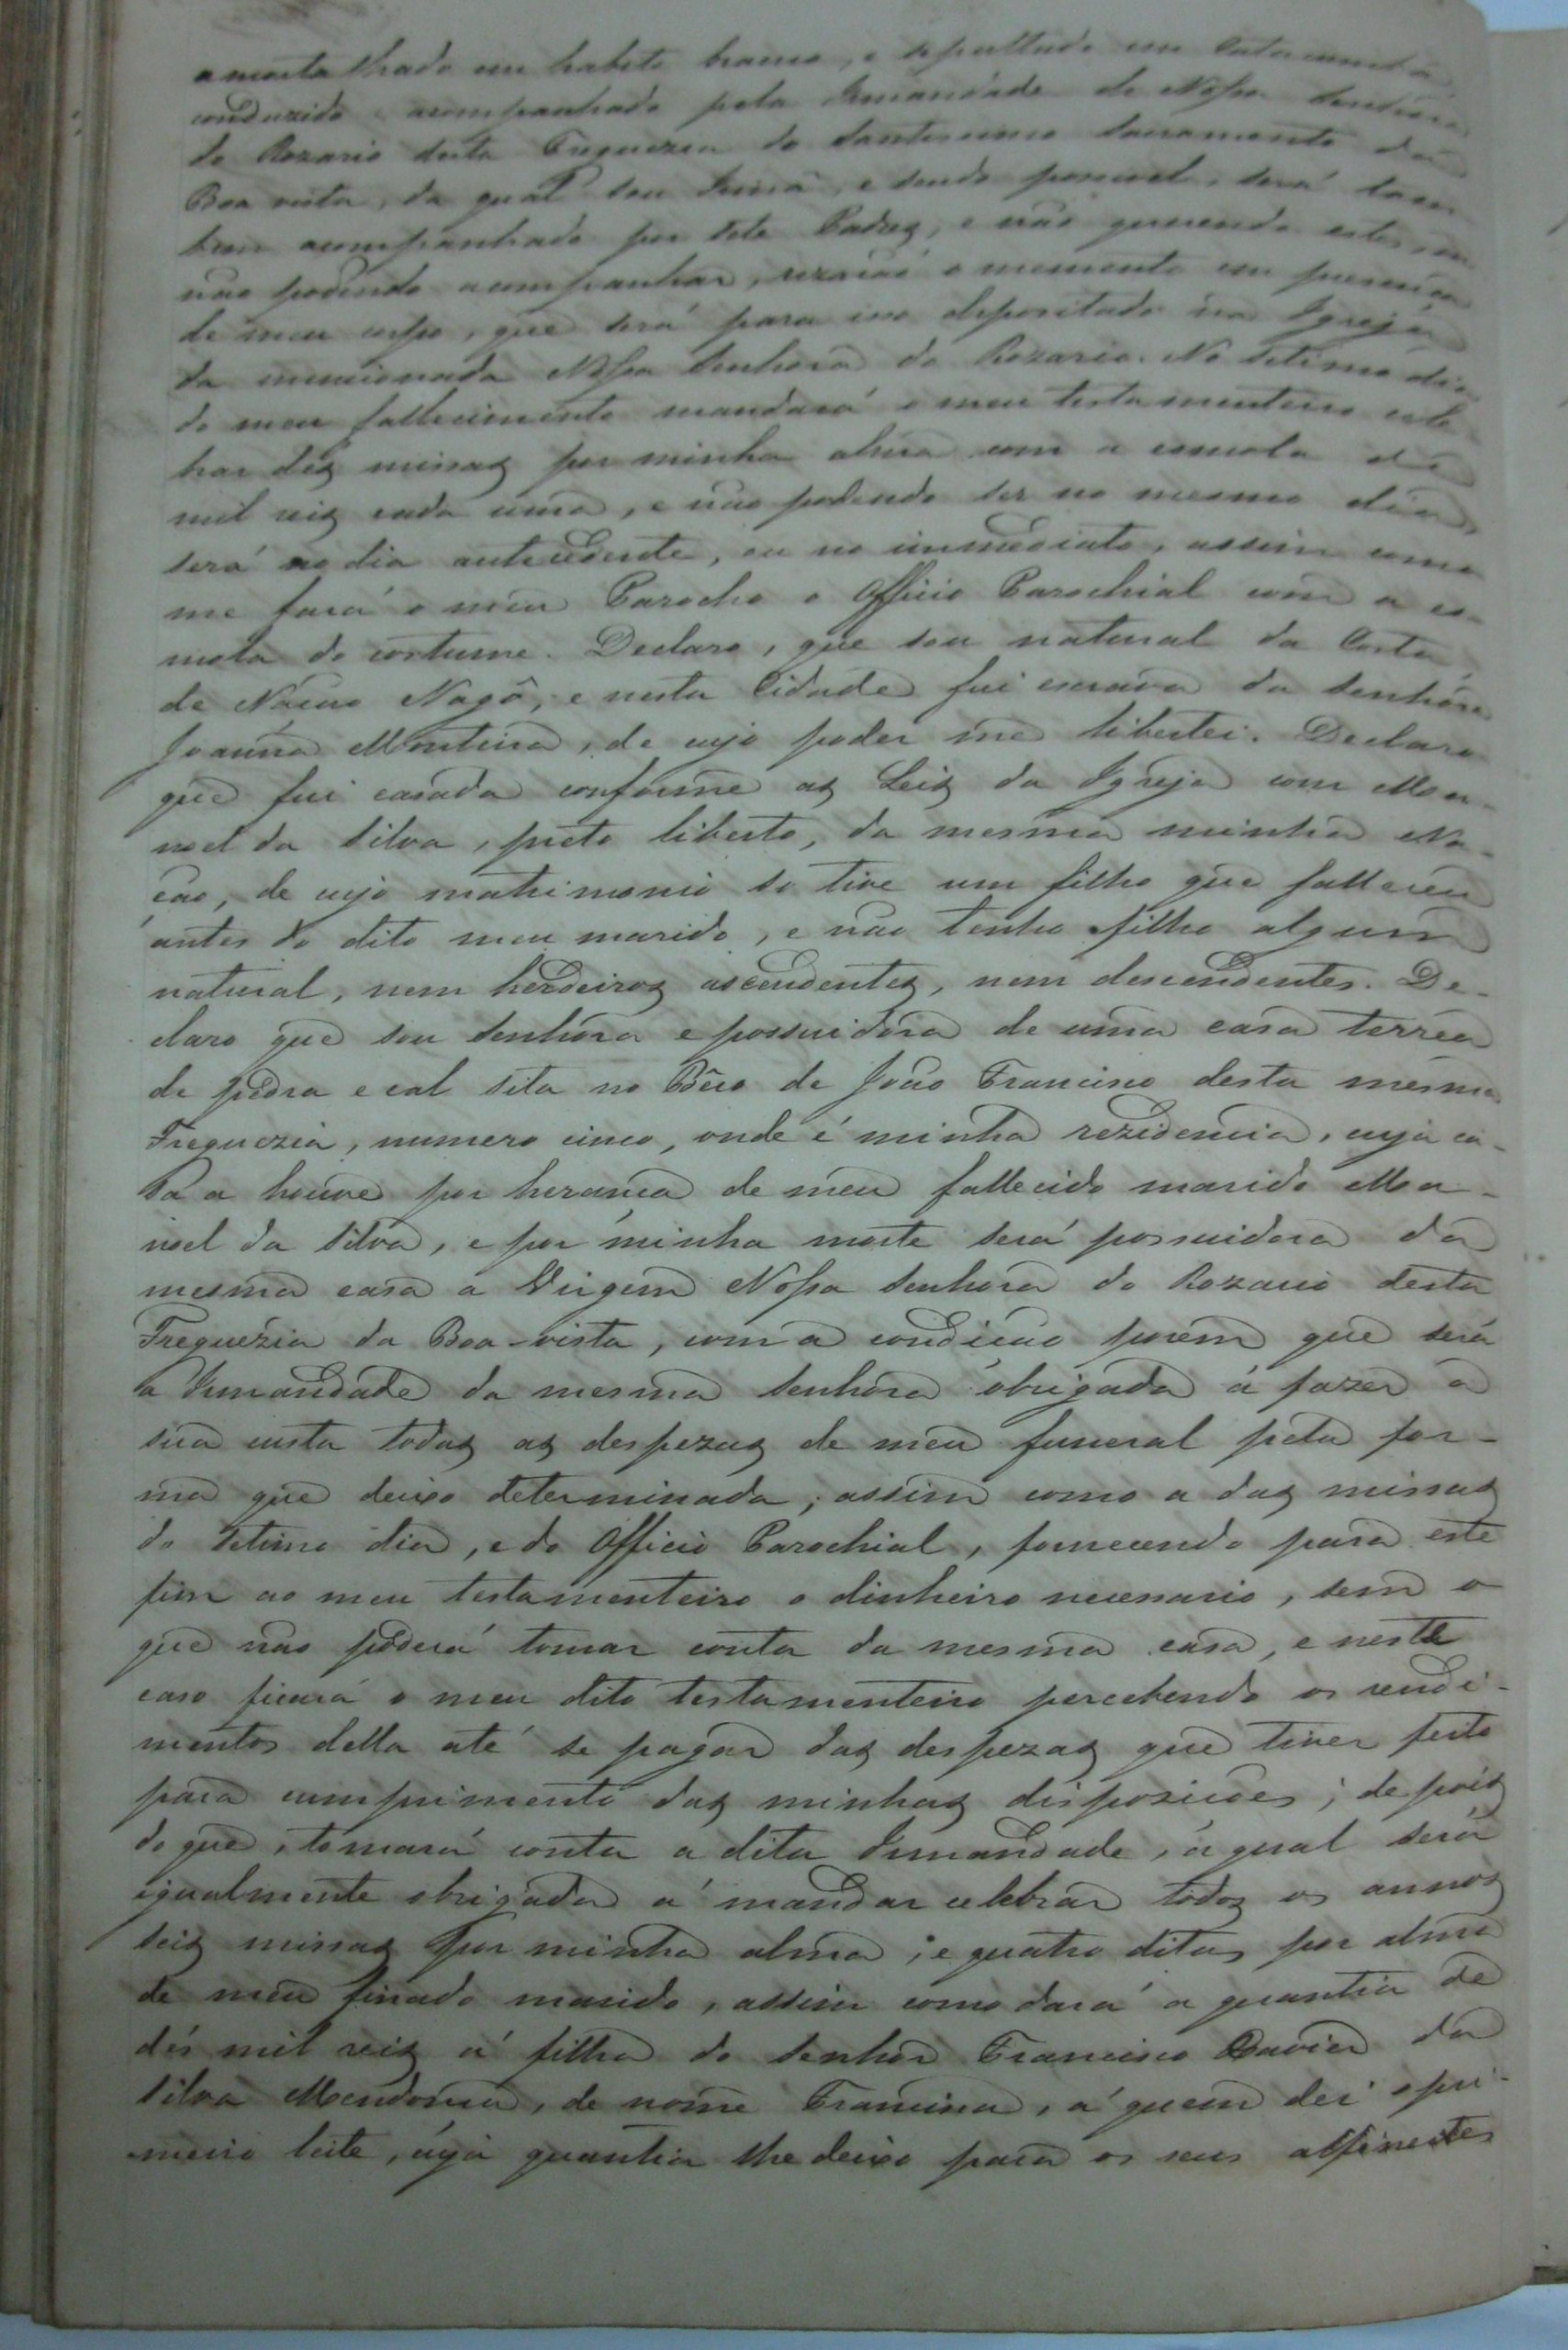 amortalhado em habito branco, e sepultado em Catacumba
conduzido e acompanhado pela Irmandade de Nossa Senhora
do Rozario desta Freguezia do Santissimo Sacramento da
Boa vista, da qual sou Irmã, e sendo possivel, será tam
bem acompanhado por sete Padres, e não querendo estes, ou
não podendo acompanhar, rezarão o memento em presença
de meu corpo, que será para isso depositado na Igreja
da mencionada Nossa Senhora do Rozario. No setimo dia
do meu fallecimento mandará o meu testamenteiro cele
brar dez missas por minha alma com a esmola de
mil reis cada uma, e não podendo ser no mesmo dia,
será no dia antecedente, ou no immediato, assim como
me fará o meu Parocho o Officio Parochial com a es-
mola do costume. Declaro, que sou natural da Costa
de Nação Nagô, e nesta Cidade fui escrava da Senhora
Joanna Monteiro, de cujo poder me libertei. Declaro
que fui casada conforme as Leis da Igreja com Ma-
noel da Silva, preto liberto, da mesma minha Na-
ção, de cujo matrimonio só tive um filho que falleceu
antes do dito meu marido, e não tenho filho algum
natural, nem herdeiros ascendentes, nem descendentes. De-
claro que sou Senhora e possuidora de uma casa terrea
de pedra e cal sita no Bêco de João Francisco desta mesma
Freguezia, numero cinco, onde é minha rezidencia, cuja ca-
sa a houve por herança de meu fallecido marido Ma-
noel da Silva, e por minha morte será possuidora da
mesma casa a Virgem Nossa Senhora do Rozario desta
Freguezia da Boa-vista, com a condição porem que será
a Irmandade da mesma Senhora obrigada á fazer a
sua custa todas as despezas de meu funeral pela for-
ma que deixo determinada, assim como a das missas
do Setimo dia, e do Officio Parochial, fornecendo para este
fim ao meu testamenteiro o dinheiro necessario, sem o
que não poderá tomar conta da mesma casa, e neste
caso ficará o meu dito testamenteiro percebendo os rendi-
mentos della até se pagar das despezas que tiver feito
para cumprimento das minhas disposições; depois
do que, tomará conta a dita Irmandade, a qual será
igualmente obrigada á mandar celebrar todos os annos
seis missas por minha alma, e quatro ditas por alma
de meu finado marido, assim como dará a quantia de
dés mil reis á filha do Senhor Francisco Xavier da
Silva Mendonça, de nome Francisca, á quem dei o pri-
meiro leite, cuja quantia lhe deixo para os seus alfinetes